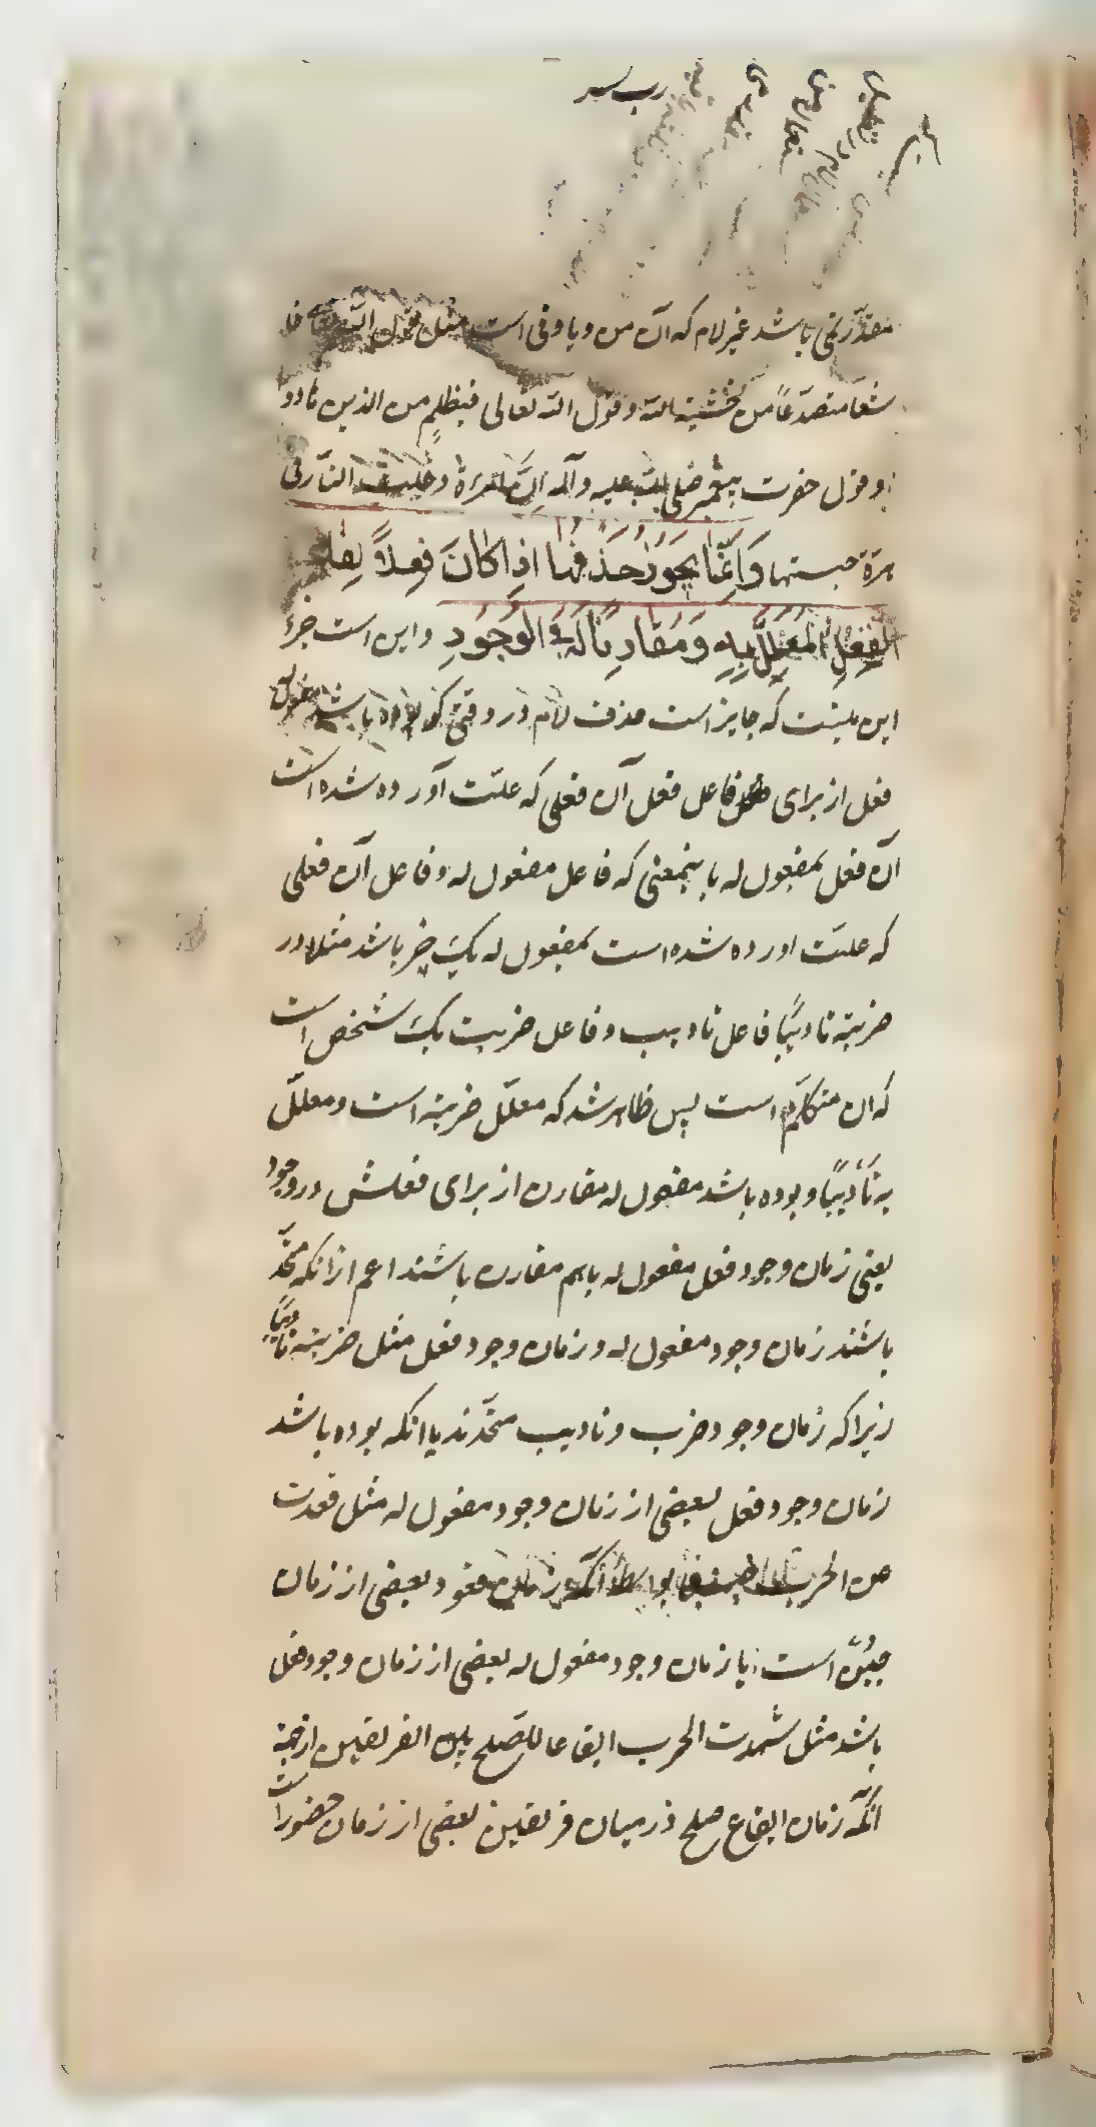 رب یسر
مقدر نمی باشد غیر لام که آن من و با و فی است مثل قول الله تعالی خا
شعا متصدعاً من خشیة الله و قول الله تعالی فبظلم من الذین هادو
و قول حضرت پیغمبر صلی الله علیه و آله ان امرءة دخلت النار فی
هرة حبستها وَاِنَّمَا یَجُوزُ حَذْفُهَا اِذَا کَانَ فِعْلاً لِفَاعِلِ
الفِعْلِ المُعَلَّلِ بِهِ وَ مُقَارِنًا لَهُ فِی الوُجُودِ و این است جزء
این نیست که جایز است حذف لام در وقتی که بوده باشد مفعول له
فعل از برای فاعل فعل آن فعلی که علت آورده شده است
آن فعل بمفعول له باینمعنی که فاعل مفعول له و فاعل آن فعلی
که علت اورده شده است بمفعول له یک چیز باشد مثلا در
ضربته تادیبًا فاعل تادیب و فاعل ضربت یک شخص است
که ان متکلم است پس ظاهر شد که معلل ضربته است و معلل
به تَأدیبًا و بوده باشد مفعول له مقارن از برای فعلش در وجود
یعنی زمان وجود فعل مفعول له باهم مقارن باشند اعم ازانکه متحد
باشند زمان وجود مفعول له و زمان وجود فعل مثل ضربته تادیبًا
زیرا که زمان وجود ضرب و تادیب متحدند یا انکه بوده باشد
زمان وجود فعل بعضی از زمان وجود مفعول له مثل قعدت
عن الحرب جبنا بواسطه آنکه زمان قعود بعضی از زمان
جبن است یا زمان وجود مفعول له بعضی از زمان وجود فعل
باشد مثل شهدت الحرب ایقاعا للصلح بین الفریقین ازجهة
انکه زمان ایقاع صلح در میان فریقین بعضی از زمان حضور است